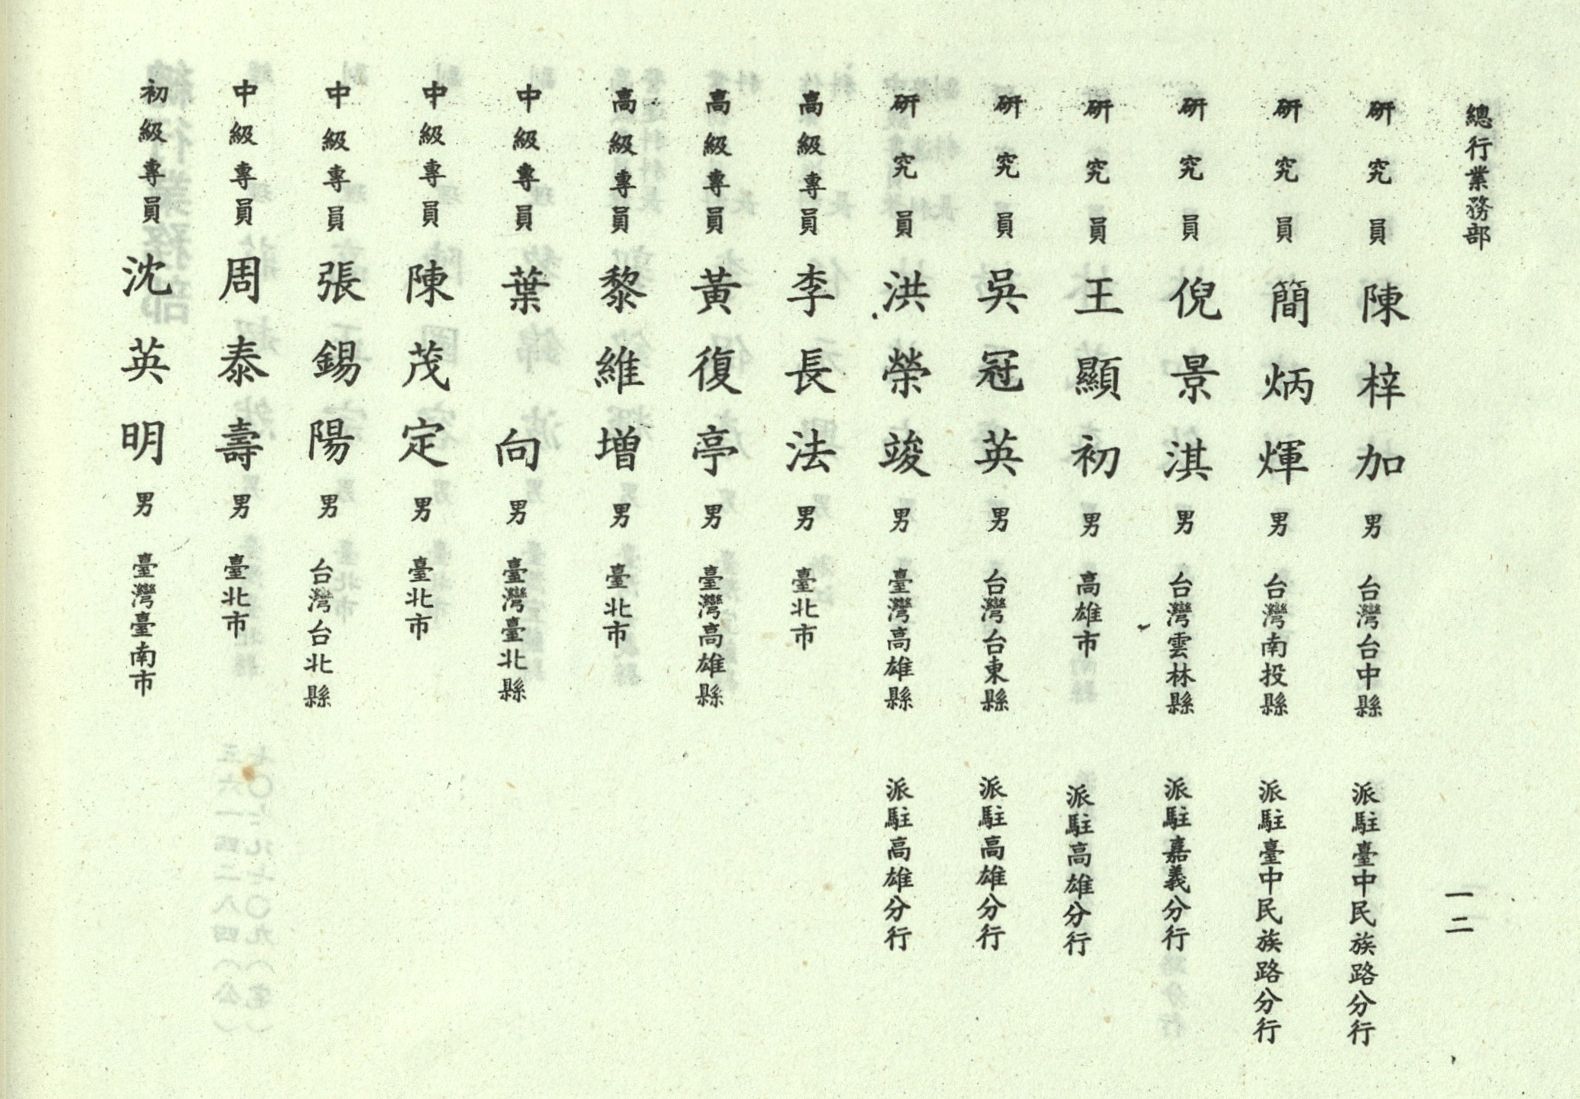 總行業務部
一二
研究員 陳梓加 男 台灣台中縣 派駐臺中民族路分行
研究員 簡炳煇 男 台灣南投縣 派駐臺中民族路分行
研究員 倪景淇 男 台灣雲林縣 派駐嘉義分行
研究員 王顯初 男 高雄市 派駐高雄分行
研究員 吳冠英 男 台灣台東縣 派駐高雄分行
研究員 洪榮竣 男 臺灣高雄縣 派駐高雄分行
高級專員 李長法 男 臺北市
高級專員 黃復亭 男 臺灣高雄縣
高級專員 黎維增 男 臺北市
中級專員 葉向 男 臺灣臺北縣
中級專員 陳茂定 男 臺北市
中級專員 張錫陽 男 台灣台北縣
中級專員 周泰壽 男 臺北市
初級專員 沈英明 男 臺灣臺南市